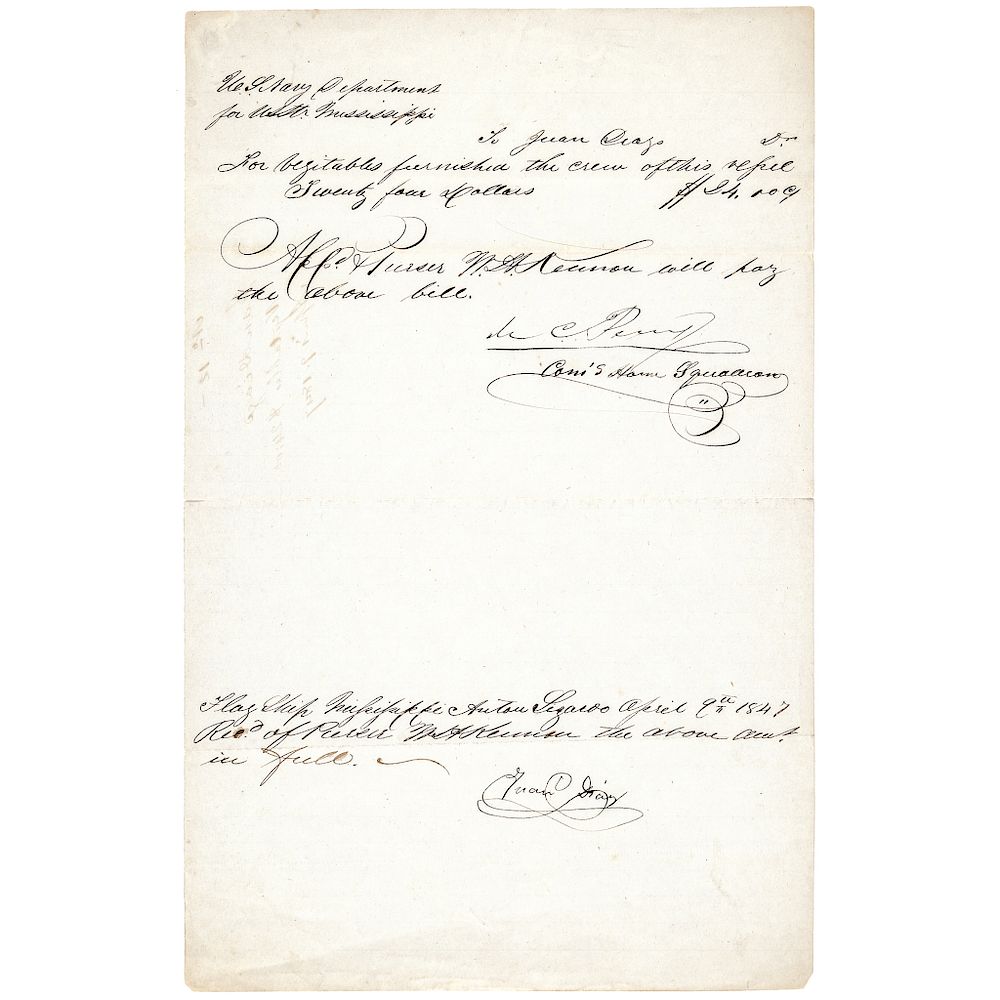 U. S. Navy Department
for U.S.Str. Mississippi
To Juan Diazo Dr
For Vegitables furnished the crew of this vessel
Twenty four Dollars $24.00
App'd & Purser W. A. Kennon will pay
the above bill.
M. C. Perry
Com'g Home Squadron
Flag Ship Mississippi Anton Lizardo April 9th 1847
Rec'd of Purser W A Kennon the above amt.
in full.
Juan Diaz